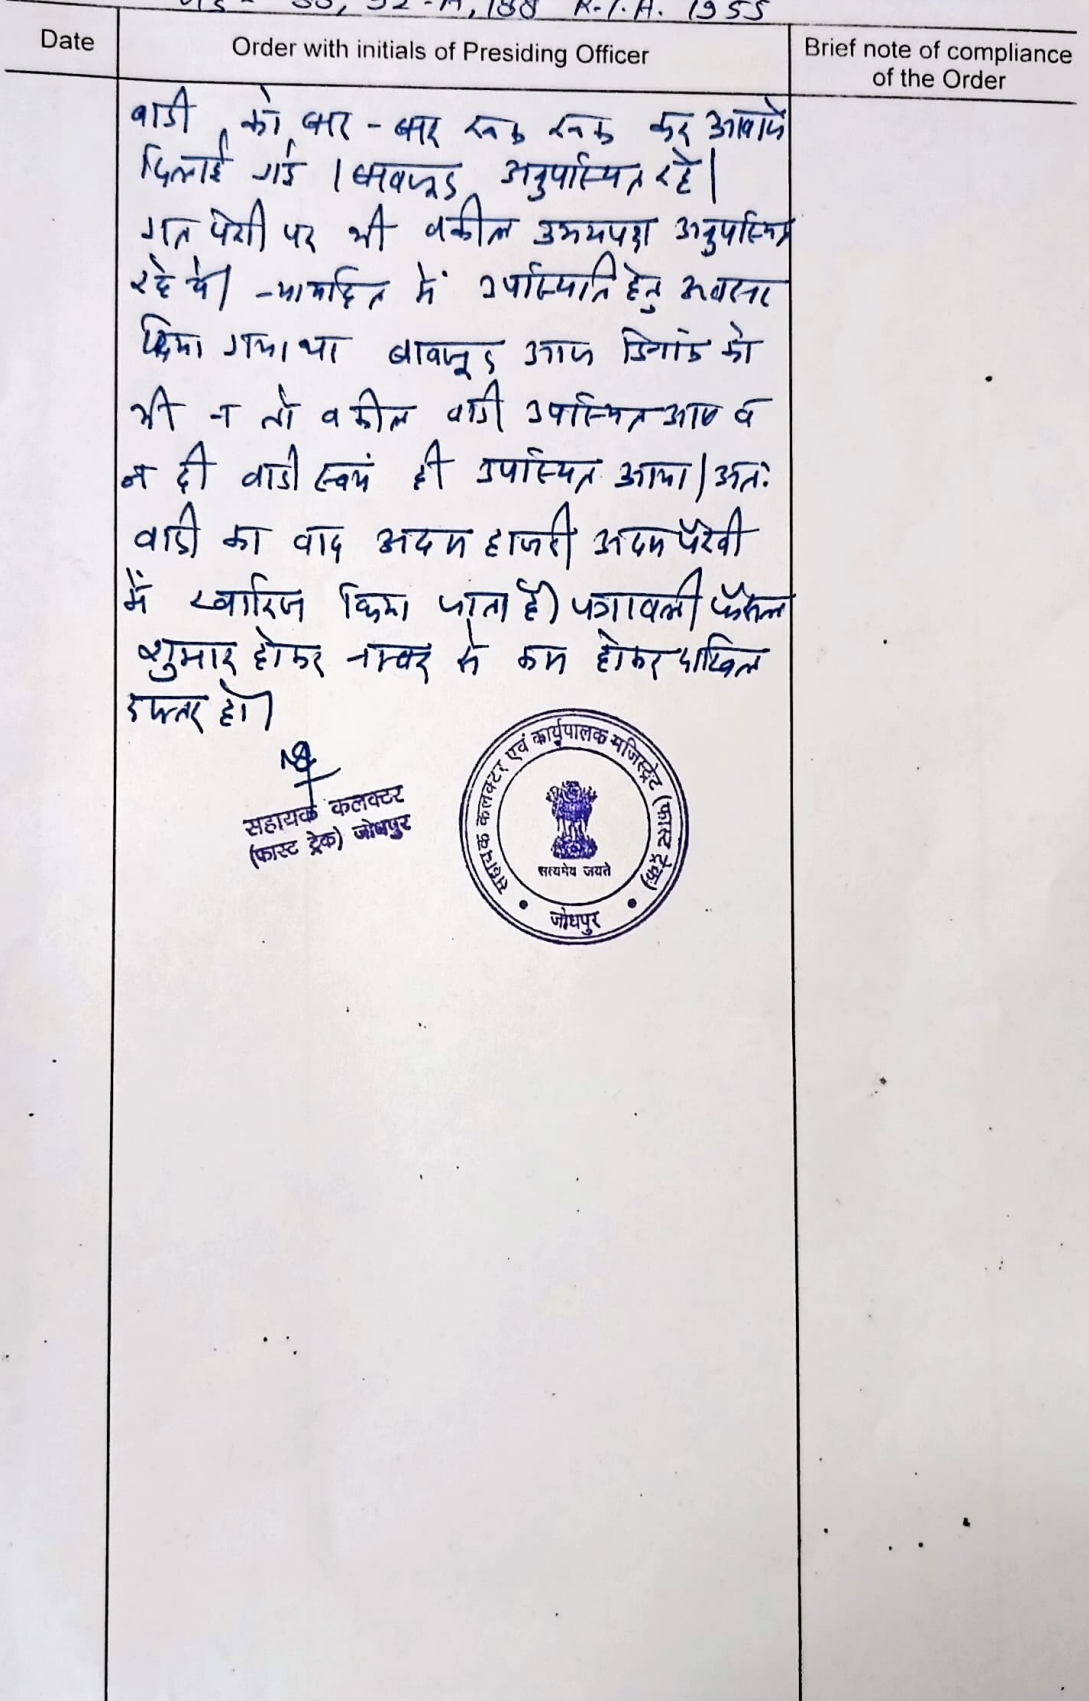 88, 92-A, 188 R.T.A. 1955
Date
Order with initials of Presiding Officer
Brief note of compliance
of the Order
वादी को बार-बार रूक रूक कर आवाजें
दिलाई गई। बावजूद अनुपस्थित रहे।
गत पेशी पर भी वकील उभयपक्ष अनुपस्थित
रहे थे। न्यायहित में उपस्थिति हेतु अवसर
दिया गया था बावजूद आज दिनांक को
भी न तो वकील वादी उपस्थित आए व
न ही वादी स्वयं ही उपस्थित आया। अतः
वादी का वाद अदम हाजरी अदम पैरवी
में खारिज किया जाता है। पत्रावली फैसल
शुमार होकर नम्बर से कम होकर दाखिल
दफ्तर हो।
सहायक कलक्टर
(फास्ट ट्रेक) जोधपुर
सहायक कलक्टर एवं कार्यपालक मजिस्ट्रेट (फास्ट ट्रेक)
सत्यमेव जयते
जोधपुर